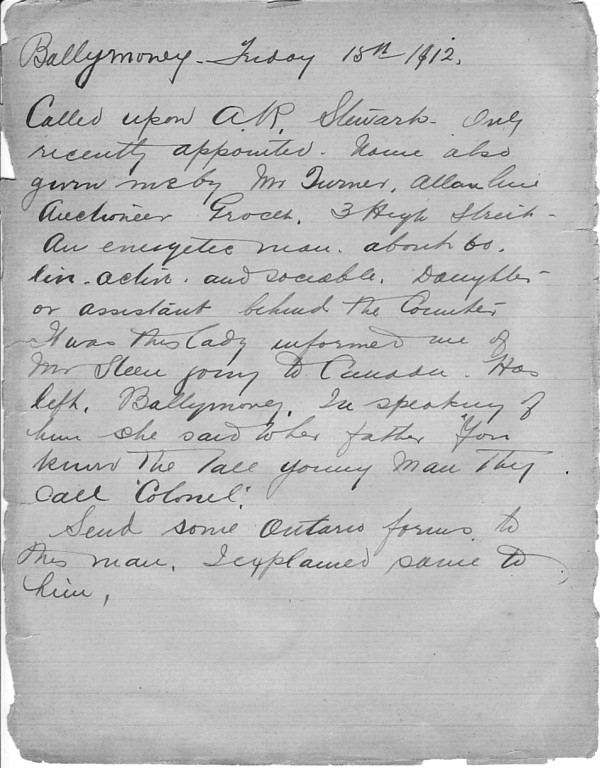 Ballymoney - Friday 18th 1912.
Called upon A.R. Stewart - Only
recently appointed. Name also
given me by Mr Turner, Allan line
Auctioneer Grocer, 3 High Street -
An energetic man. about 60.
active. and sociable. Daughter
or assistant behind the Counter
It was this lady informed me of
Mr Steen going to Canada. Has
left. Ballymoney. In speaking of
him she said to her father "You
know the tall young man they
call 'Colonel'.
Send some Ontario forms to
this man. I explained same to
him,